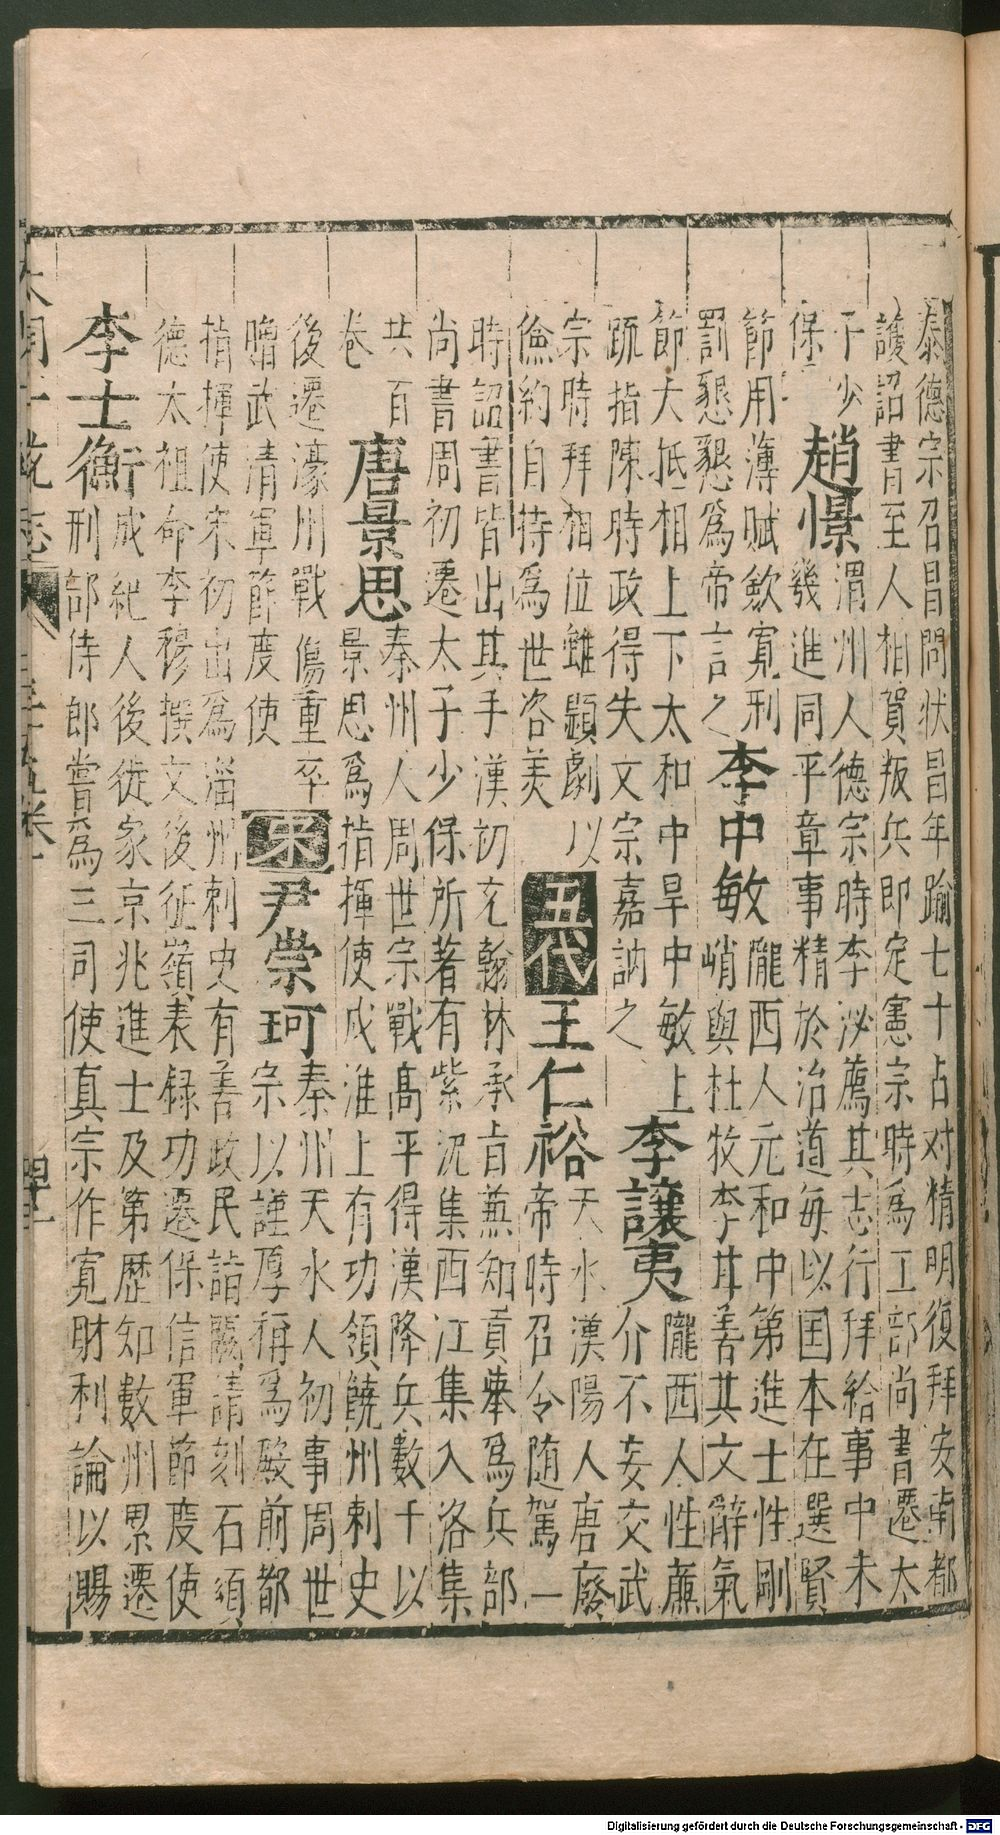 泰德宗召昌問狀昌年踰七十占对精明復拜安南都
護詔書至人相賀叛兵即定憲宗時為工部尚書遷太
子少
保
趙憬
渭州人德宗時李泌薦其志行拜給事中未
幾進同平章事精於治道每以国本在選賢
節用薄賦歛寬刑
罰懇懇為帝言之
李中敏
隴西人元和中第進士性剛
峭與杜牧李甘善其文辭氣
節大抵相上下太和中旱中敏上
疏指陳時政得失文宗嘉訥之
李讓夷
隴西人性廉
介不妄交武
宗時拜相位雖顯劇以
儉約自持為世咨美
五代
王仁裕
天水漢陽人唐廢
帝時召令随駕一
時詔書皆出其手漢初充翰林承旨兼知貢舉為兵部
尚書周初遷太子少保所著有紫泥集西江集入洛集
共百
卷
唐景思
秦州人周世宗戰高平得漢降兵數千以
景思為指揮使戍淮上有功領饒州刺史
後遷濠州戰傷重卒
贈武清軍節度使
宋
尹崇珂
秦州天水人初事周世
宗以謹厚稱為殿前都
指揮使宋初出為淄州刺史有善政民詣闕請刻石須
德太祖命李穆撰文後征嶺表録功遷保信軍節度使
李士衡
成紀人後徙家京兆進士及第歷知數州累遷
刑部侍郎嘗為三司使真宗作寬財利論以賜
大明一統志
Digitalisierung gefördert durch die Deutsche Forschungsgemeinschaft - DFG